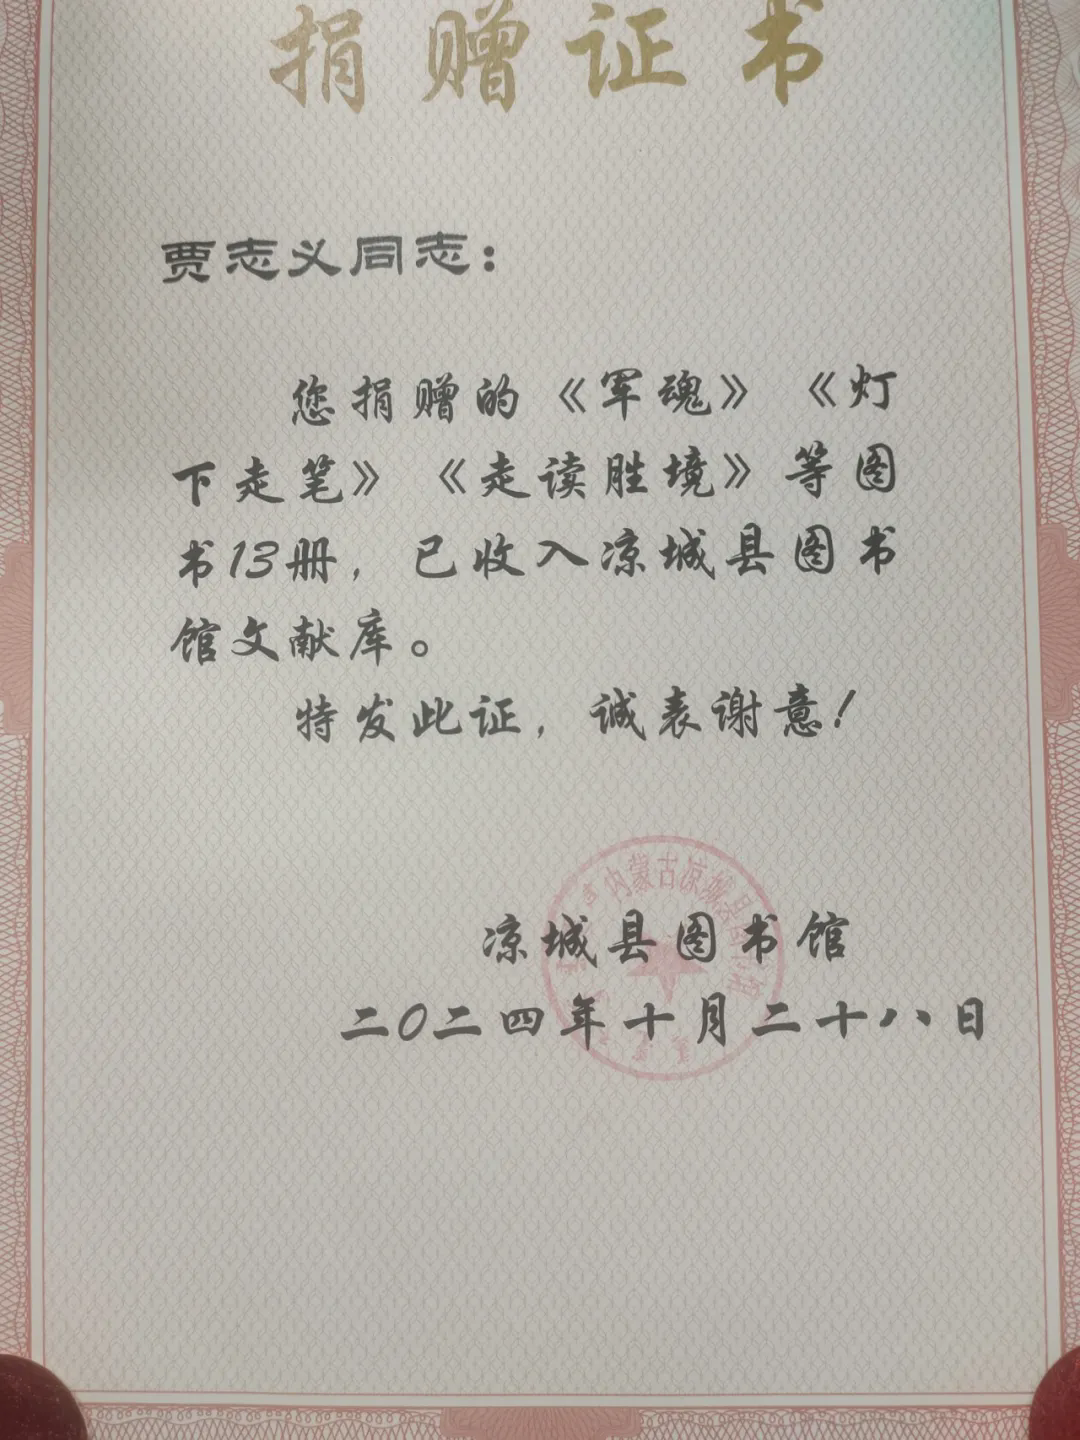 捐赠证书
贾志义同志：
您捐赠的《军魂》《灯
下走笔》《走读胜境》等图
书13册，已收入凉城县图书
馆文献库。
特发此证，诚表谢意！
内蒙古凉城县图书馆
凉城县图书馆
二0二四年十月二十八日